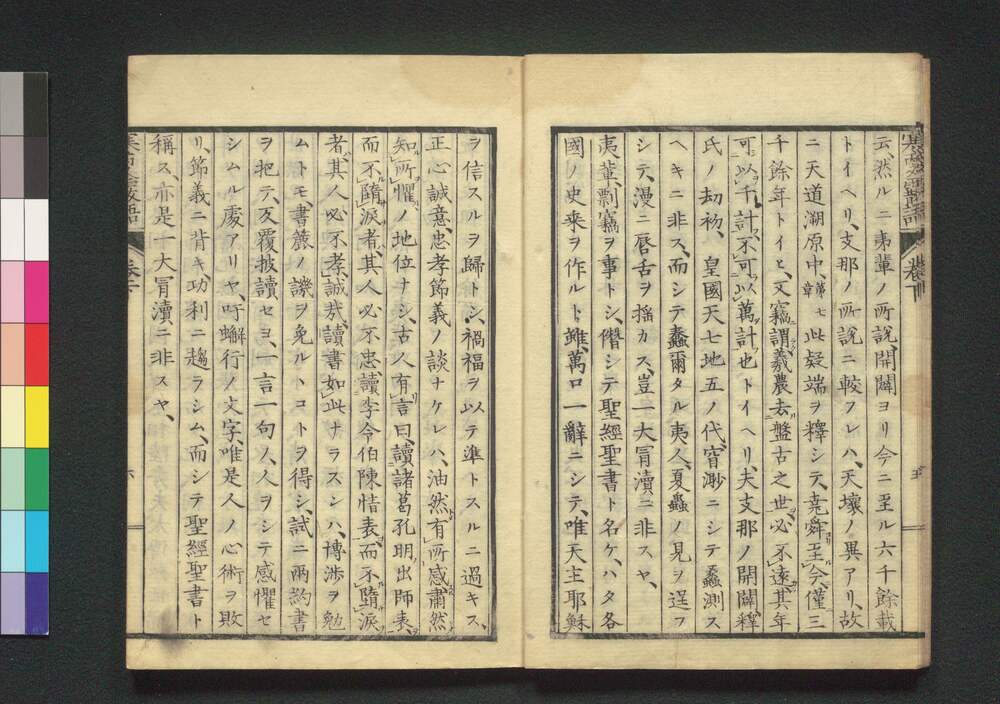 云、然ルニ夷輩ノ所説、開闢ヨリ今ニ至ル六千餘載
トイヘリ、支那ノ所説ニ較フレハ、天壤ノ異アリ、故
ニ天道溯原中、第七章此疑端ヲ釋シテ、堯舜至今、僅三
千餘年トイヒ、又竊謂、羲農去盤古之世、必不遠、其年
可以千計、不可以萬計也トイヘリ、夫支那ノ開闢、釋
氏ノ劫初、皇國天七地五ノ代、窅渺ニシテ蠡測ス
ヘキニ非ス、而シテ蠢爾タル夷人、夏蟲ノ見ヲ逞フ
シテ、漫ニ唇舌ヲ搖カス、豈一大冒瀆ニ非スヤ、
夷輩、剽竊ヲ事トシ、僭シテ聖經聖書ト名ケ、ハタ各
國ノ史乘ヲ作ルト雖、萬口一辭ニシテ、唯天主耶穌
ヲ信スルヲ歸トシ、禍福ヲ以テ準トスルニ過キス、
正心誠意、忠孝節義ノ談ナケレハ、油然有所感肅然
知所懼ノ地位ナシ、古人有言曰、讀諸葛孔明出師表、
而不隕涙者、其人必不忠、讀李令伯陳情表、而不隕涙
者、其人必不孝、誠哉、讀書如此ナラスンハ、博渉ヲ勉
ムトモ、書簏ノ譏ヲ免ルヽコトヲ得シ、試ニ兩約書
ヲ把テ、反覆披讀セヨ、一言一句ノ、人ヲシテ感懼セ
シムル處アリヤ、呼蠏行ノ文字、唯是人ノ心術ヲ敗
リ、節義ニ背キ、功利ニ趨ラシム、而シテ聖經聖書ト
稱ス、亦是一大冒瀆ニ非スヤ、